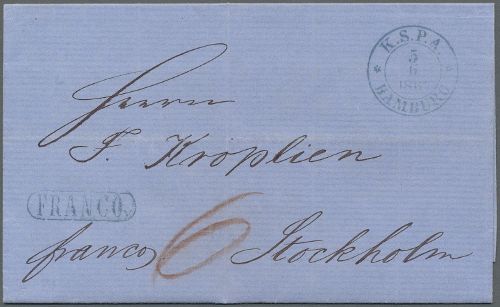 K.S.P.A.
5
6
HAMBURG
Herrn
F. Kroplien
FRANCO.
franco 6 Stockholm